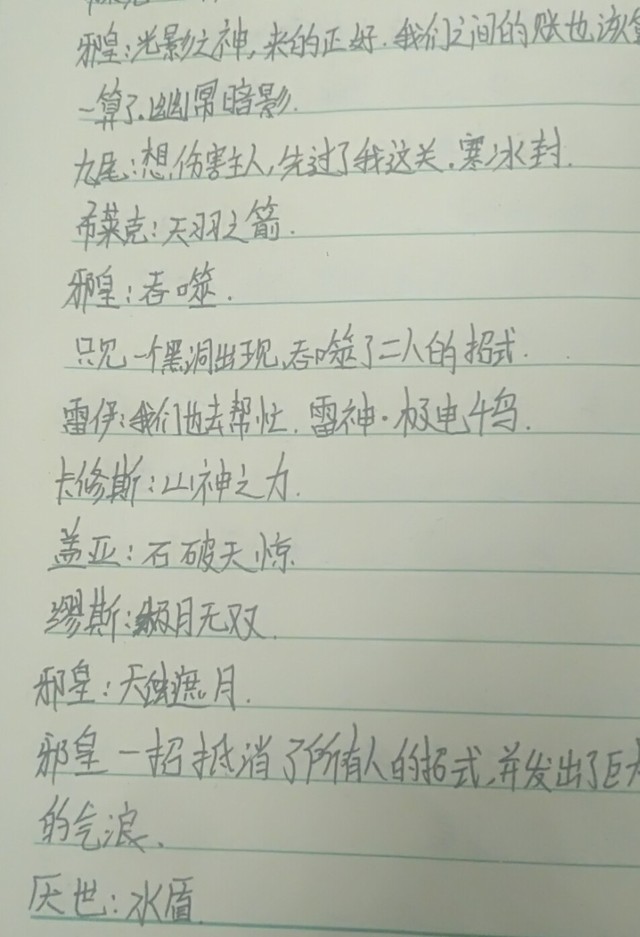 邪皇:光影之神,来的正好.我们之间的账也该
一算了.幽冥暗影.
九尾:想伤害主人,先过了我这关.寒冰封.
布莱克:天羽之箭.
邪皇:吞噬.
只见一个黑洞出现,吞噬了二人的招式.
雷伊:我们也去帮忙.雷神·极电千鸟.
卡修斯:山神之力.
盖亚:石破天惊
缪斯:极月无双
邪皇:天蚀遮月.
邪皇一招抵消了所有人的招式,并发出了巨大
的气浪.
厌世:水盾.